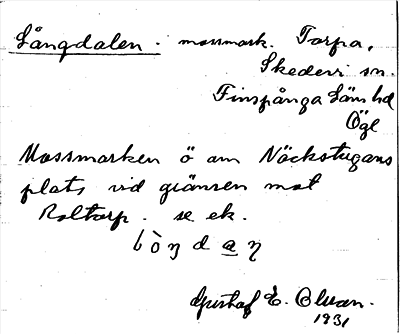 Långdalen. mossmark. Torpa,
Skedevi sn.
Finspånga läns hd
Ögl
Mossmarken ö om Näckstugans
plats vid gränsen mot
Roltorp. se ek.
Gustaf E. Olsson.
1931